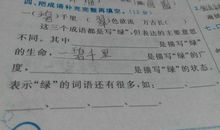 四、把成语补充完整再填空。(12分)
一(碧)千里 ( )色欲流 万古长( )
这三个成语都是写"绿",但表达的主要意思
不同。其中 是描写"绿"
的生命, 碧千里 是描写"绿"的广
度, 是描写"绿"的状态。
表示"绿"的词语还有很多,如: